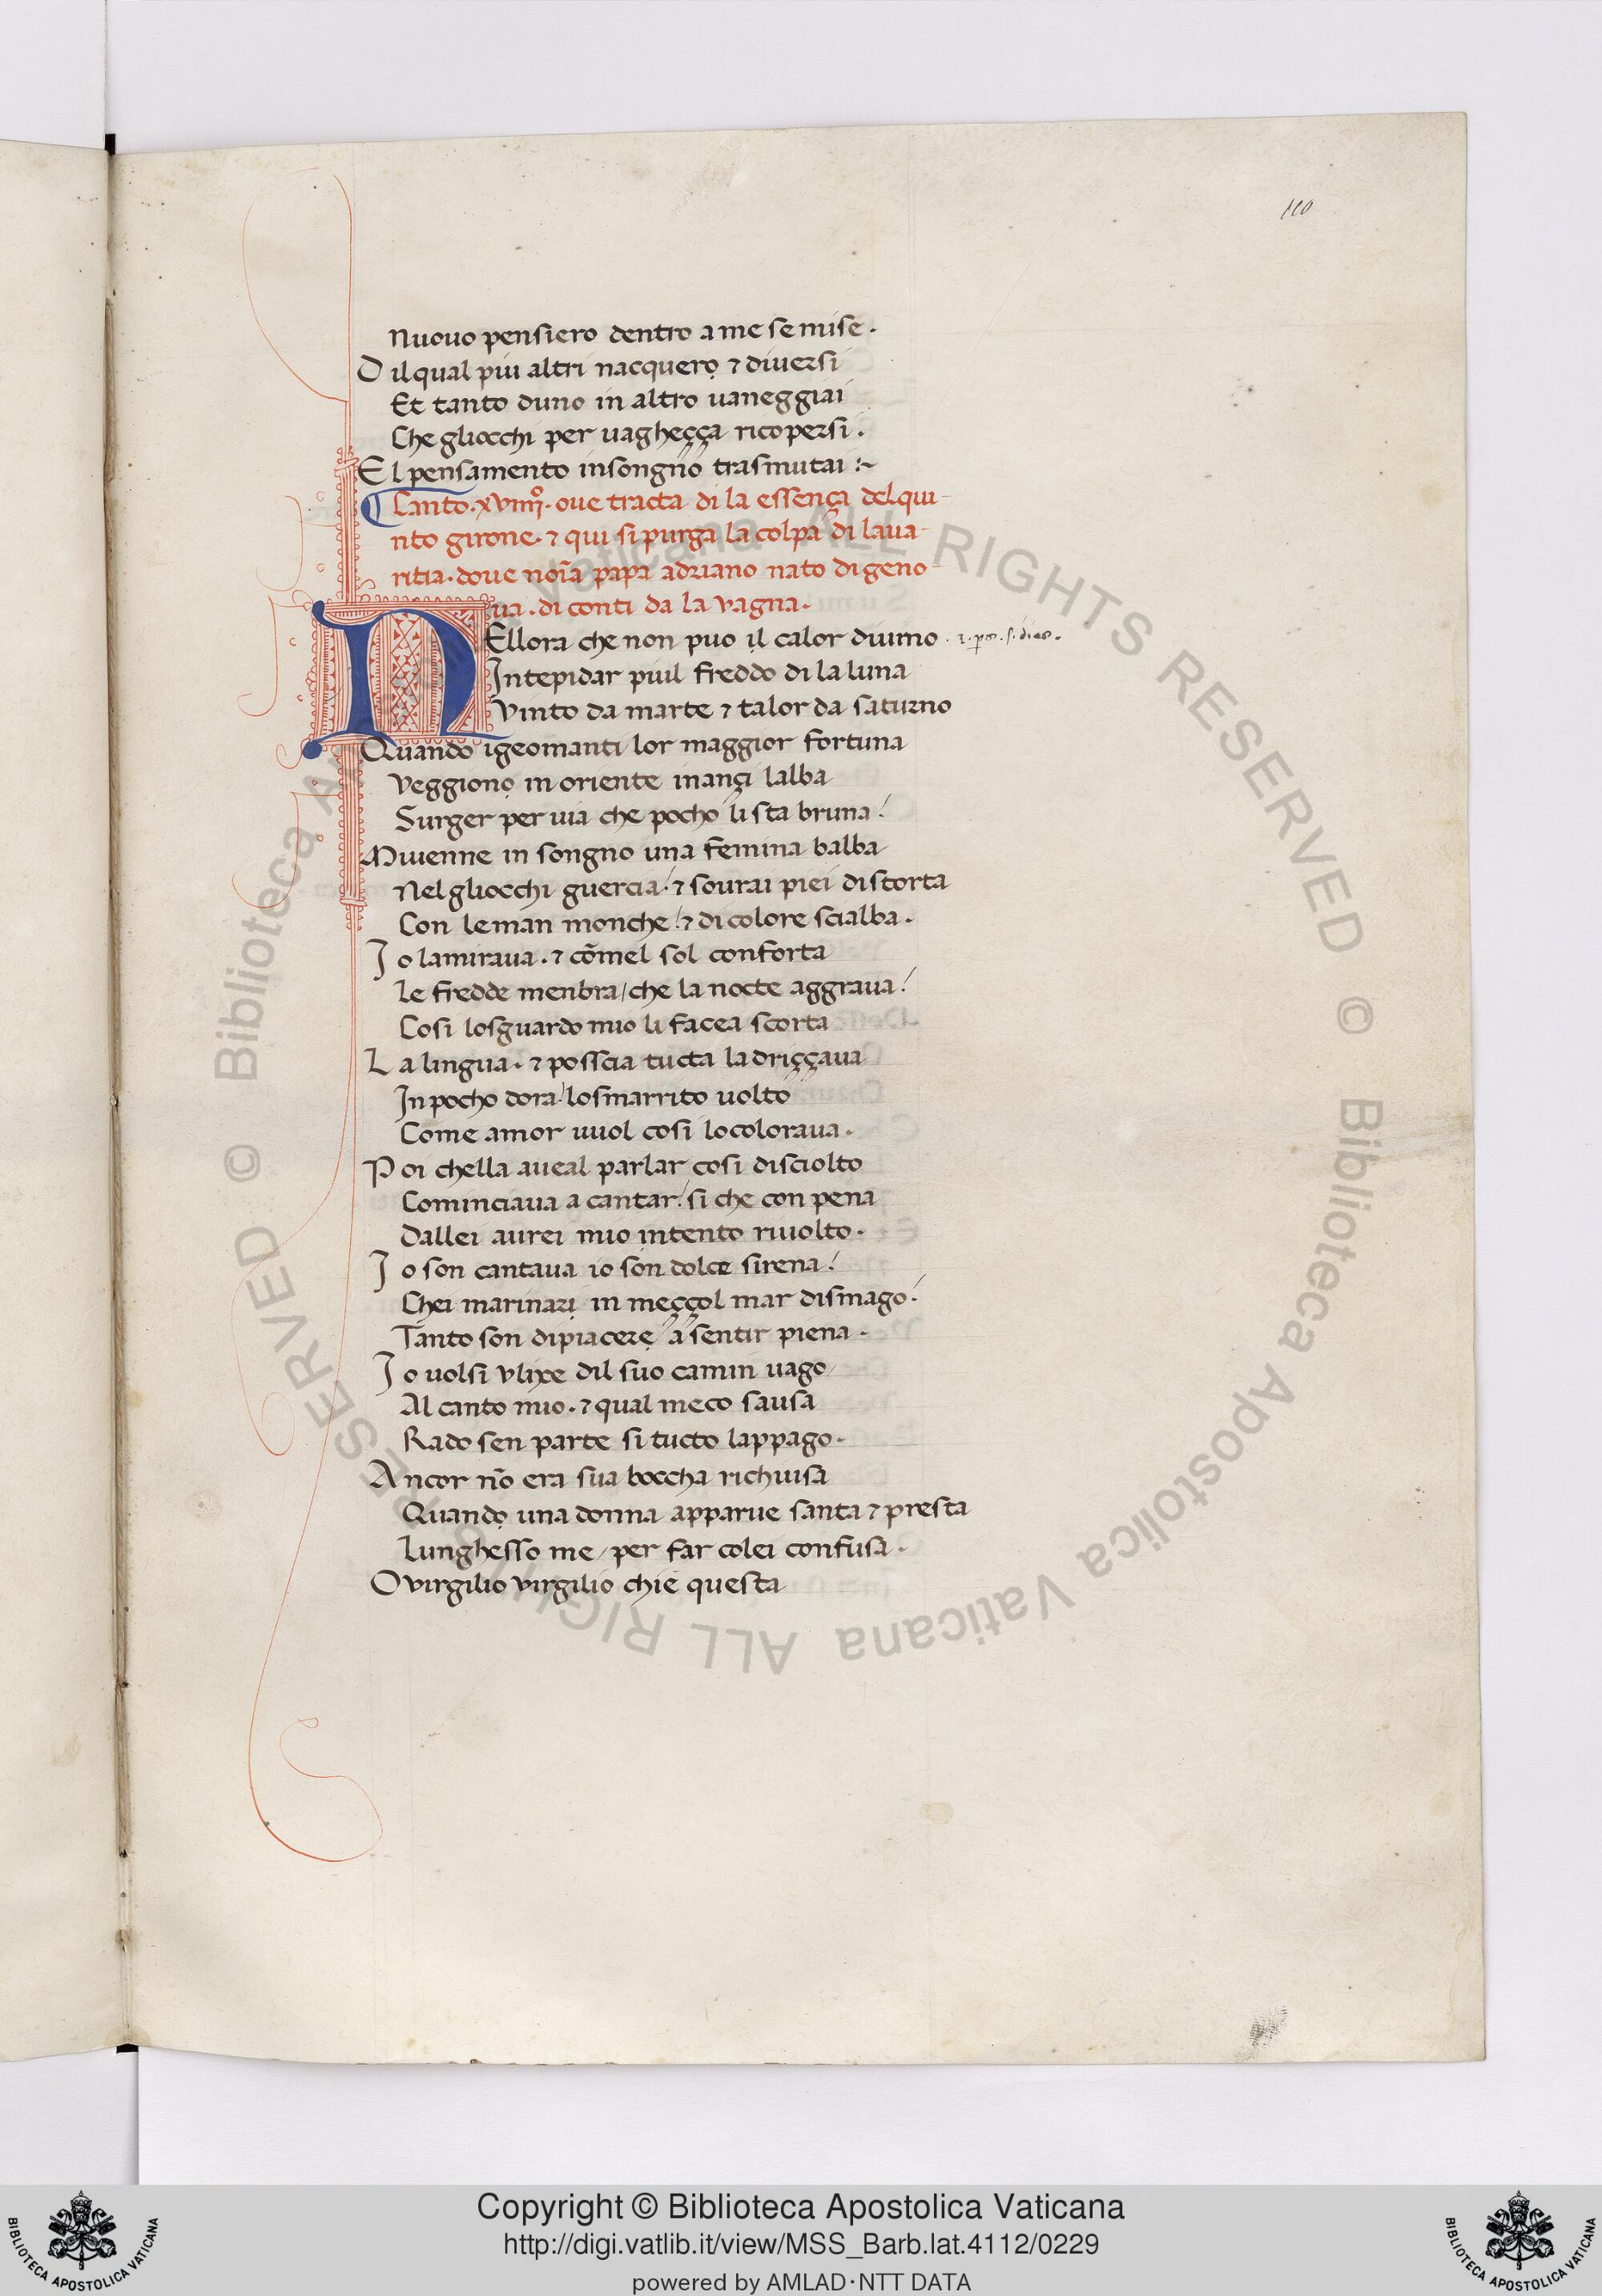 110
Nuouo pensiero dentro a me se mise.
D il qual piu altri nacquerọ ⁊ diuersi
Et tanto duno in altro uaneggiai
Che gliocchi per uagheçça ricopersi.
El pensamento insongno trasmutai :~
Canto. xviiij°. oue tracta di la essença del qui-
nto girone. ⁊ qui si purga la colpa di laua-
ritia. doue noĩa papa adriano nato di geno-
ua. di conti da la vagna.
NEllora che non puo il calor diurno
Intepidar piuil freddo di la luna
Vinto da marte ⁊ talor da saturno
Quando i geomanti lor maggior fortuna
Veggionọ in oriente inançi lalba
Surger per uia che pocho li sta bruna!
Miuenne in songno una femina balba
Nel gliocchi guercia! ⁊ sourai piei distorta
Con le man monche! ⁊ di colore scialba.
Io lamiraua. ⁊ cõmel sol conforta
Le fredde menbra/che la nocte aggraua!
Cosi losguardo mio li facea scorta
La lingua. ⁊ posscia tucta la driççaua
In pocho dora! losmarrito uolto
Come amor uuol cosi lo coloraua.
Poi chella aueal parlar cosi disciolto
Cominciaua a cantar! si che con pena
Dallei aurei mio intento riuolto.
Io son cantaua io son dolce sirena!
Chei marinarị in meççol mar dismago!
Tanto son di piacerẹ a sentir piena.
Io uolsi vlixe dil suo camin uago/
Al canto mio. ⁊ qual meco sausa
Rado sen parte si tucto lappago.
Ancor nõ era sua boccha richiusa
Quandọ una donna apparue santa ⁊ presta
Lunghesso me/per far colei confusa.
O virgilio virgilio chie questa
© Biblioteca Apostolica Vaticana ALL RIGHTS RESERVED © Biblioteca Apostolica Vaticana ALL RIGHTS RESERVED
Copyright © Biblioteca Apostolica Vaticana
http://digi.vatlib.it/view/MSS_Barb.lat.4112/0229
powered by AMLAD·NTT DATA
BIBLIOTECA APOSTOLICA VATICANA
BIBLIOTECA APOSTOLICA VATICANA